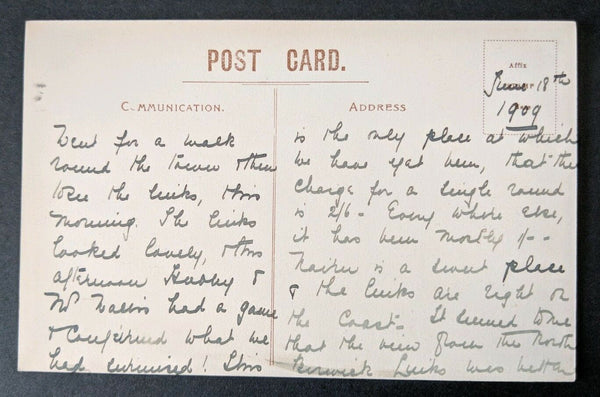 POST CARD.
COMMUNICATION.
ADDRESS
Affix
June 18th
1909
Went for a walk
round the town & then
over the links, this
morning. The links
looked lovely, & this
afternoon Hubby &
Mr had a game
& confirmed what we
had surmised! This
is the only place at which
we have yet been, that the
charge for a single round
is 2/6 - Every where else,
it has been mostly 1/- -
Nairn is a sweet place
& the links are right on
the Coast - It seemed to me
that the view from the North
Berwick Links was better